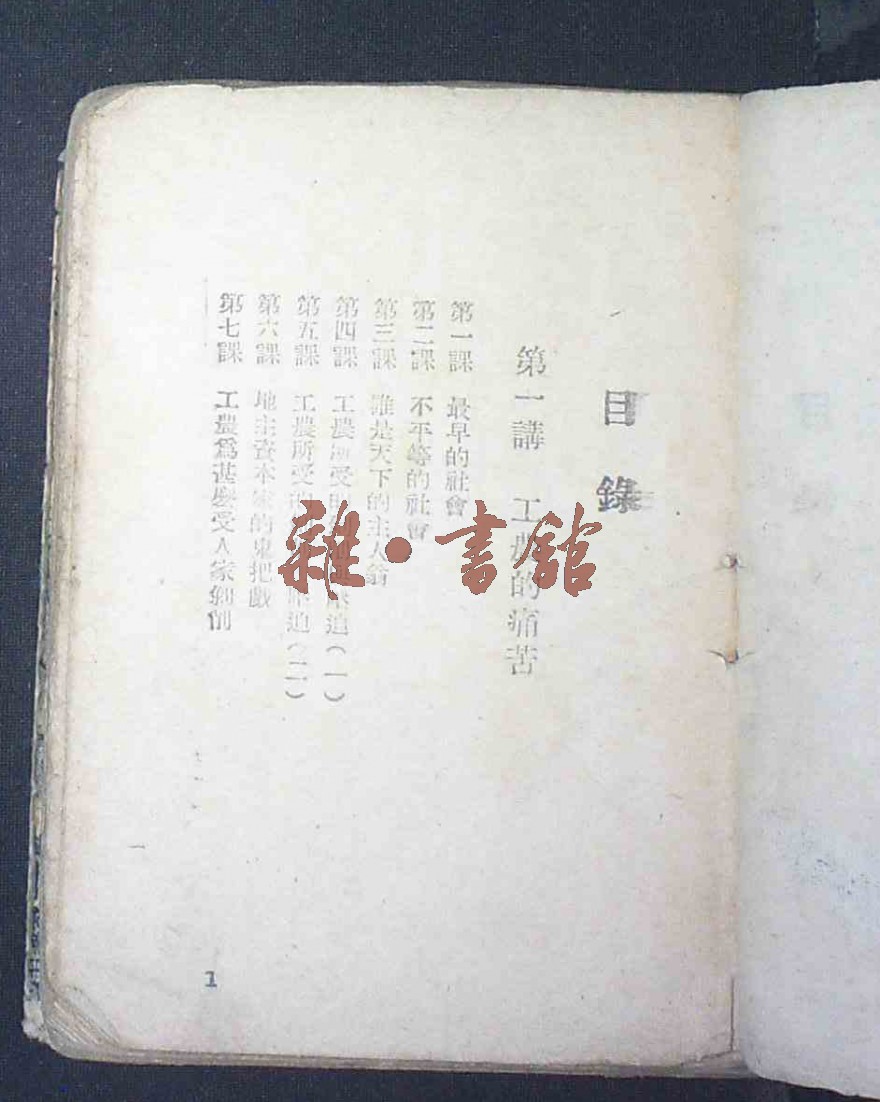 目錄
第一講 工農的痛苦
第一課 最早的社會
第二課 不平等的社會
第三課 誰是天下的主人翁
第四課 工農所受的 迫(一)
第五課 工農所受的 迫(二)
第六課 地主資本家的鬼把戲
第七課 工農爲甚麼受人家剝削
雜·書館
1